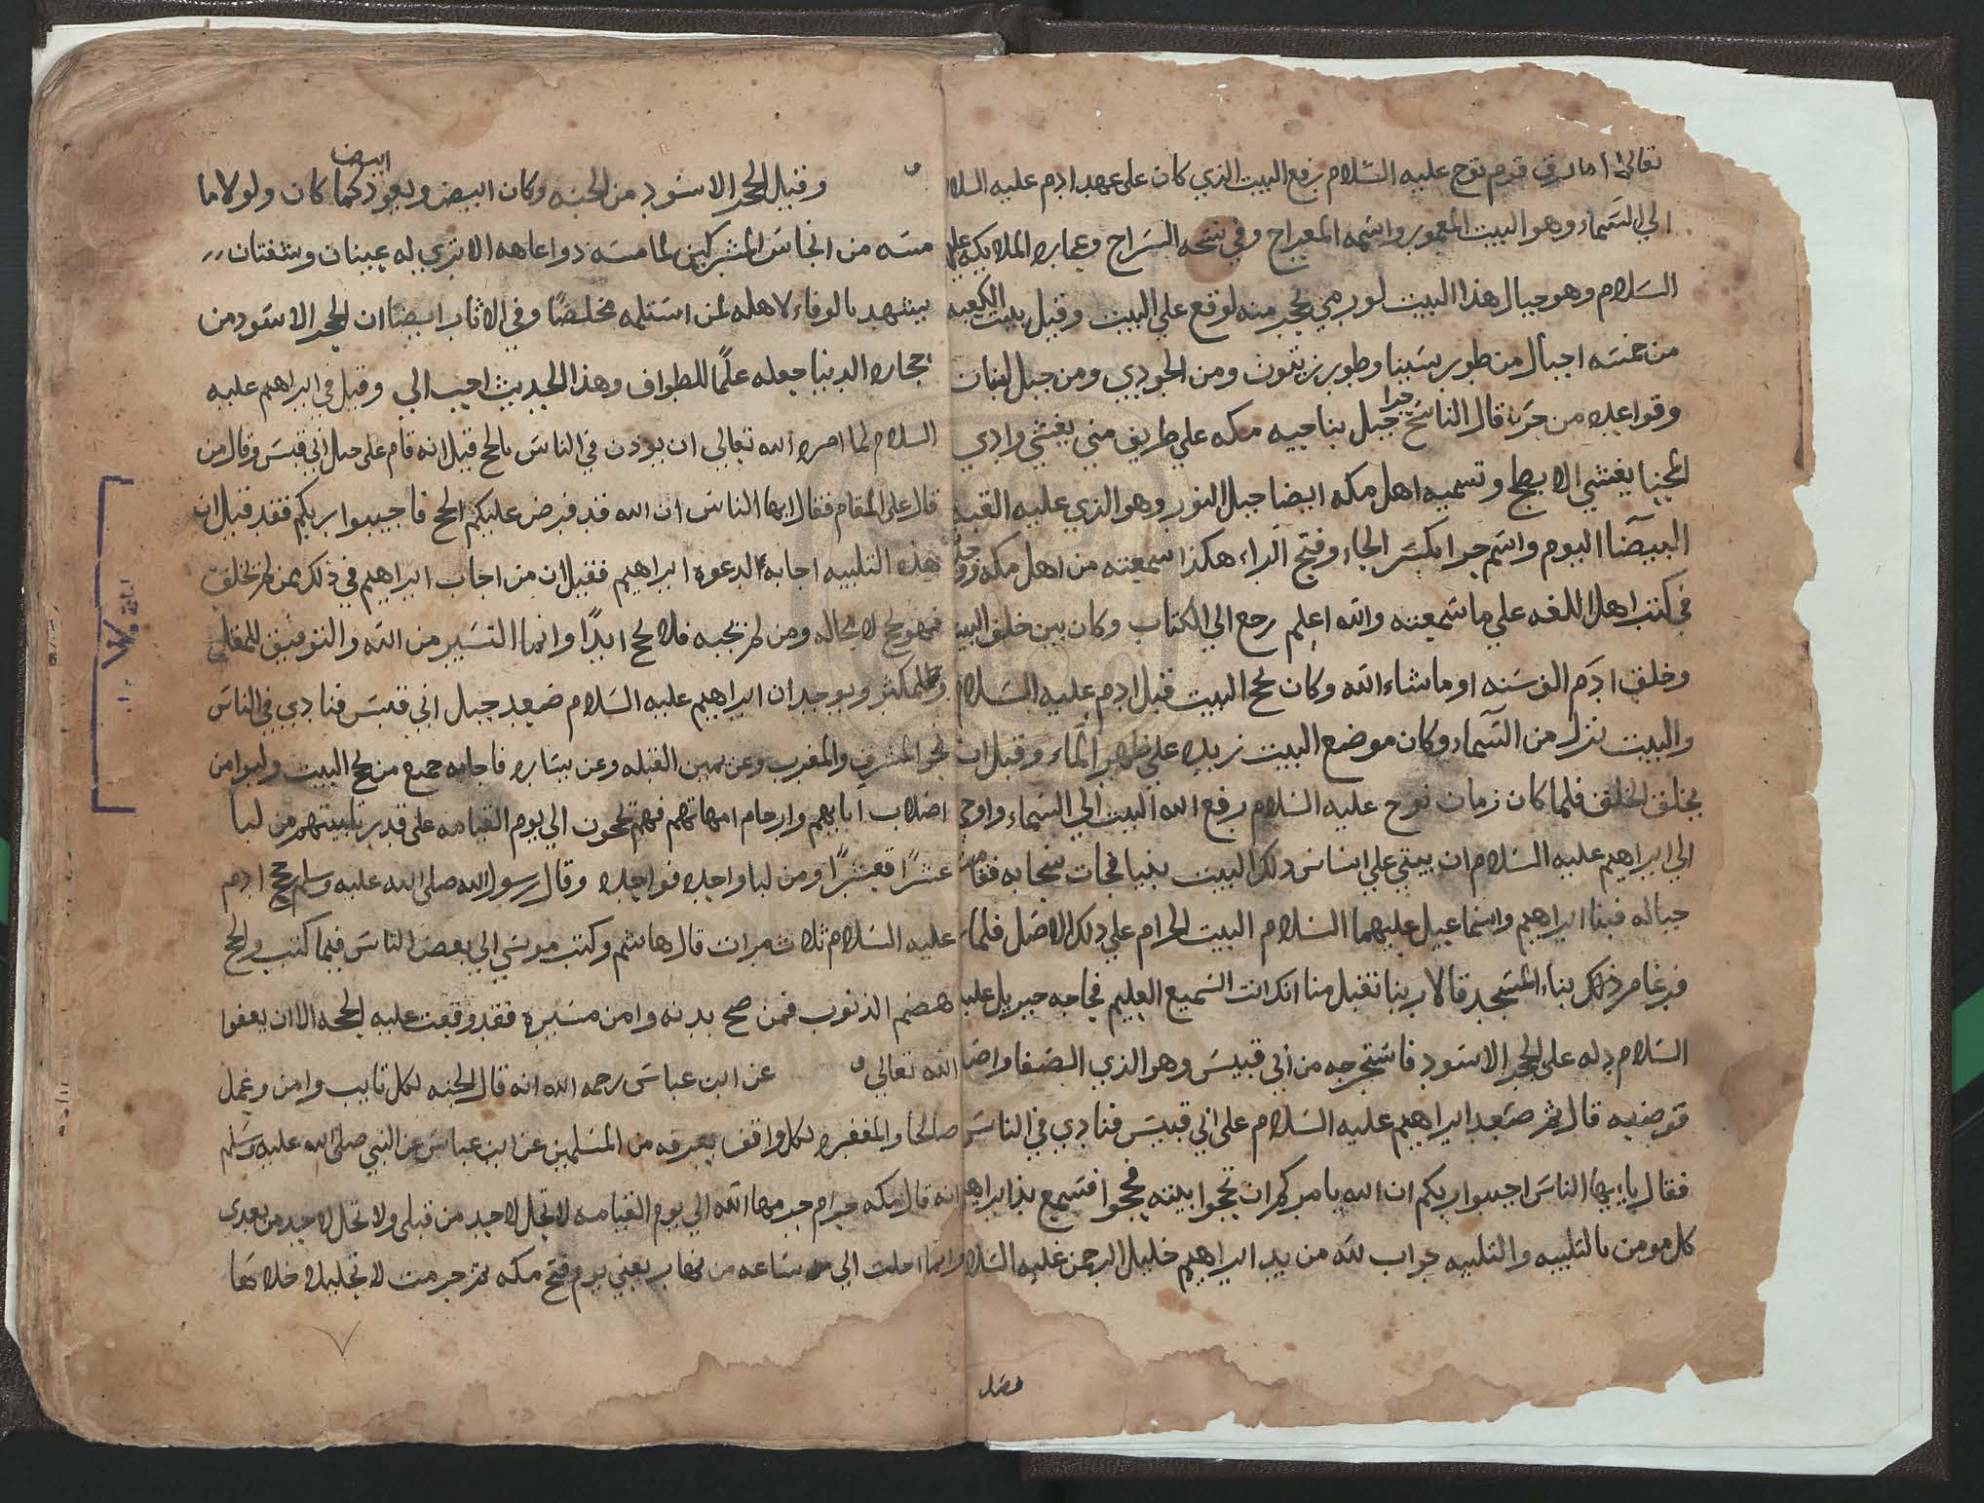 تعالى اما اغرق قوم نوح عليه السلام رفع البيت الذي كان على عهد ادم عليه السلا
الى السماء وهو البيت المعمور واسمه المعراج وفي نسخه السراج وعماره الملايكه عليهم
السلام وهو حيال هذا البيت لو رمي بحجر منه لوقع على البيت وقيل بنيت الكعبه
من خمسه اجبال من طور سينا وطور زيتون ومن الجودي ومن جبل لبنان
وقواعده من حرا قال الناسخ حرا جبل بناحيه مكه على طريق مني يغشي وادي
يغشي الابطح وتسميه اهل مكه ايضا جبل النور وهو الذي عليه القبه
البيضا اليوم واسم حرا بكسر الحاء وفتح الراء هكذا سمعته من اهل مكه
في كتب اهل اللغه على ما سمعته والله اعلم رجع الى الكتاب وكان بين خلق البيت
وخلق ادم الف سنه او ما شاء الله وكان يحج البيت قبل ادم عليه السلام
والبيت نزل من السماء وكان موضع البيت زبده على ظهر الماء وقيل ان
يخلق الخلق فلما كان زمان نوح عليه السلام رفع الله البيت الى السماء واوحي
الى ابراهيم عليه السلام ان يبني على اساس ذلك البيت بنيا فجات سحابه فقامت
حياله فبنا ابراهيم واسماعيل عليهما السلام البيت الحرام على ذلك الاصل فلما
فرغا من ذلك بناء المسجد قالا ربنا تقبل منا انك انت السميع العليم فجاءه جبريل عليه
السلام دله على الحجر الاسود فاستخرجه من ابي قبيس وهو الذي الصفا واصا
فوضعه قال ثم صعد ابراهيم عليه السلام على ابي قبيس فنادي في الناس
فقال ياايها الناس اجيبوا ربكم ان الله يامركم ان تحجوا بيته فحجوا فسمع ندا ابراهيم
كل مومن بالتلبيه والتلبيه جواب لله من يد ابراهيم خليل الرحمن عليه السلا
فصل
وقيل الحجر الاسود من الجنه وكان ابيض ويعود كما كان ابيض ولولا ما
مسه من انجاس المشركين لما مسه ذو اعاهه الا بري له عينان وشفتان
يشهد بالوفاء لاهله لمن استلمه مخلصا وفي الاثار ايضا ان الحجر الاسود من
احجار الدنيا جعله علما للطواف وهذا الحديث احب الي وقيل في ابراهيم عليه
السلام لما امره الله تعالى ان يوذن في الناس بالحج قيل انه قام على جبل ابي قبيس وقال من
قال على المقام فقال ايها الناس ان الله قد فرض عليكم الحج فاجيبوا ربكم فقد قيل ان
هذه التلبيه اجابه لدعوه ابراهيم فقيل ان من اجاب ابراهيم في ذلك ممن لم يخلق
فهو يحج لا محاله ومن لم يجبه فلا يحج ابدا وانما التيسير من الله والتوفيق
ويوجد ان ابراهيم عليه السلام صعد جبل ابي قبيس فنادي في الناس
نحو المشرق والمغرب وعن يمين القبله وعن يساره فاجابه جميع من يحج البيت ولبوا من
اصلاب ابايهم وارحام امهاتهم فهم يحجون الى يوم القيامه على قدر تلبيتهم من لبا
عشرا فعشرا ومن لبا واحده فواحده وقال رسول الله صلى الله عليه وسلم حج ادم
عليه السلام ثلاث مرات قال هاشم وكتب موسي الى بعض الناس فيما كتب والحج
هضم الذنوب فمن صح بدنه وامن مسيره فقد وقعت عليه الحجه الا ان يعفوا
الله تعالي عن ابن عباس رحمه الله انه قال الجنه لكل تايب وامن وعمل
صالحا والمغفره لكل واقف بعرفه من المسلمين عن ابن عباس عن النبي صلى الله عليه وسلم
انه قال مكه حرام حرمها الله الى يوم القيامه لا تحل لاحد من قبلي ولا تحل لاحد من بعدي
وانما احلت الي ساعه من نهار يعني يوم فتح مكه ثم حرمت لا تحليل خلاءها